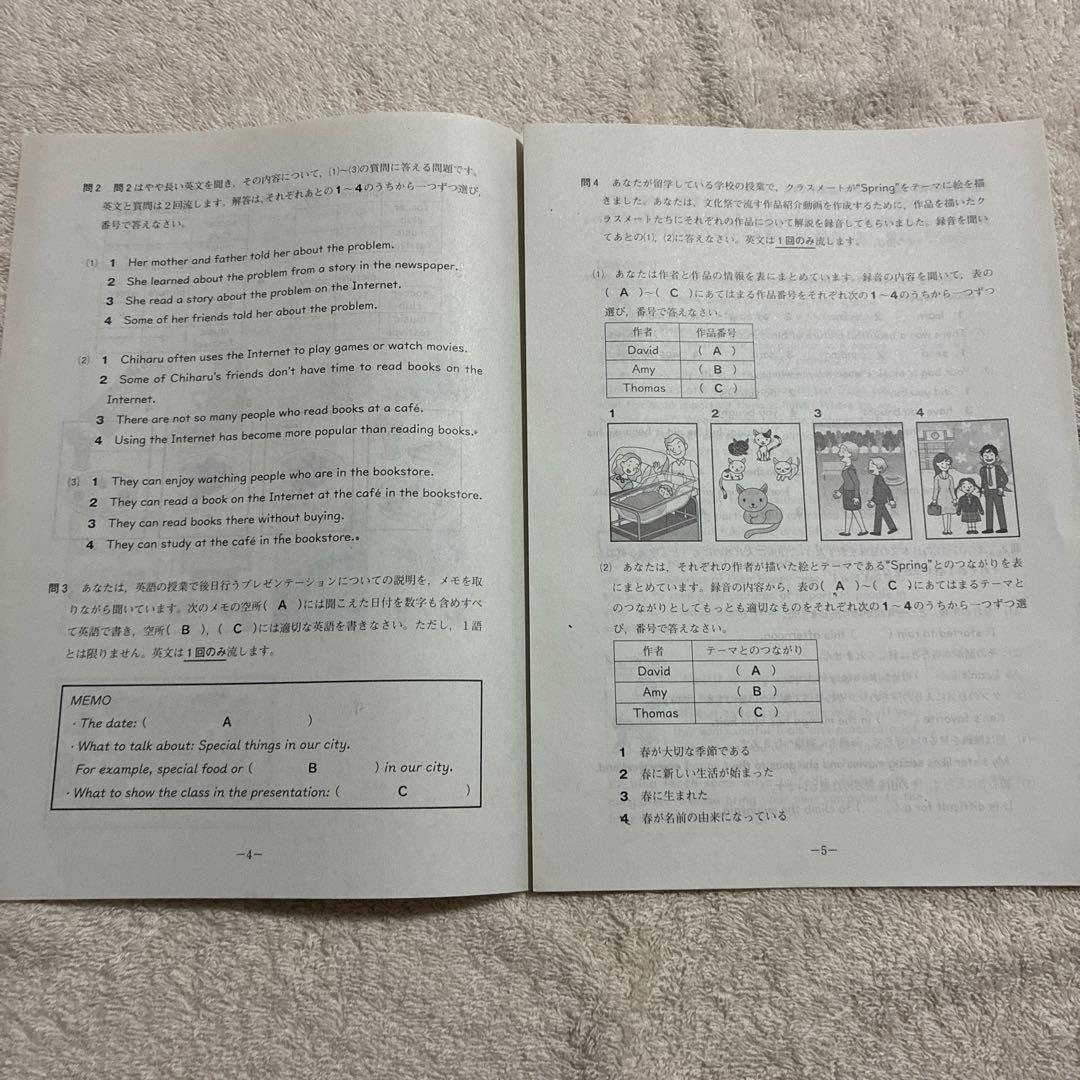 問2 問2はやや長い英文を聞き，その内容について，(1)～(3)の質問に答える問題です。
英文と質問は2回流します。解答は，それぞれあとの1～4のうちから一つずつ選び，
番号で答えなさい。
(1) 1 Her mother and father told her about the problem.
2 She learned about the problem from a story in the newspaper.
3 She read a story about the problem on the Internet.
4 Some of her friends told her about the problem.
(2) 1 Chiharu often uses the Internet to play games or watch movies.
2 Some of Chiharu's friends don't have time to read books on the
Internet.
3 There are not so many people who read books at a café.
4 Using the Internet has become more popular than reading books.
(3) 1 They can enjoy watching people who are in the bookstore.
2 They can read a book on the Internet at the café in the bookstore.
3 They can read books there without buying.
4 They can study at the café in the bookstore.
問3 あなたは，英語の授業で後日行うプレゼンテーションについての説明を，メモを取
りながら聞いています。次のメモの空所( A )には聞こえた日付を数字も含めすべ
て英語で書き，空所( B )，( C )には適切な英語を書きなさい。ただし，1語
とは限りません。英文は1回のみ流します。
MEMO
・The date: ( A )
・What to talk about: Special things in our city.
For example, special food or ( B ) in our city.
・What to show the class in the presentation: ( C )
―4―
問4 あなたが留学している学校の授業で，クラスメートが"Spring"をテーマに絵を描
きました。あなたは，文化祭で流す作品紹介動画を作成するために，作品を描いたク
ラスメートたちにそれぞれの作品について解説を録音してもらいました。録音を聞い
てあとの(1)，(2)に答えなさい。英文は1回のみ流します。
(1) あなたは作者と作品の情報を表にまとめています。録音の内容を聞いて，表の
( A )～( C )にあてはまる作品番号をそれぞれ次の1～4のうちから一つずつ
選び，番号で答えなさい。
作者 作品番号
David ( A )
Amy ( B )
Thomas ( C )
1 2 3 4
(2) あなたは，それぞれの作者が描いた絵とテーマである"Spring"とのつながりを表
にまとめています。録音の内容から，表の( A )～( C )にあてはまるテーマと
のつながりとしてもっとも適切なものをそれぞれ次の1～4のうちから一つずつ選
び，番号で答えなさい。
作者 テーマとのつながり
David ( A )
Amy ( B )
Thomas ( C )
1 春が大切な季節である
2 春に新しい生活が始まった
3 春に生まれた
4 春が名前の由来になっている
―5―